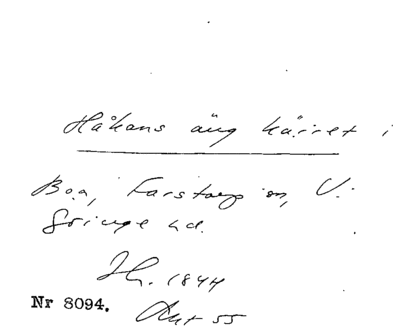 Håkans äng kärret i
Boa, Farstorp sn, V.
Göinge hd.
Jh. 1844
Nr 8094. Akt 55